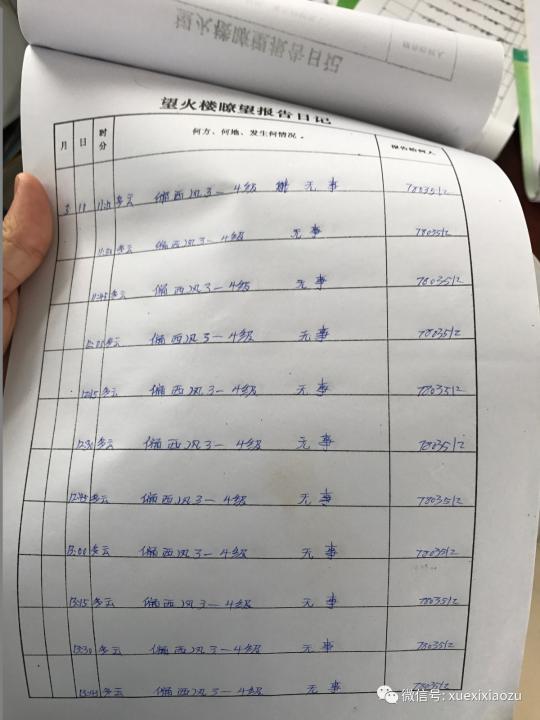 望火楼瞭望报告日记
望火楼瞭望报告日记
月 日 时分 何方、何地、发生何情况。 报告给何人
3 11 多云 偏西风3—4级 无事 7803512
多云 偏西风3—4级 无事 7803512
11:45 多云 偏西风3—4级 无事 7803512
12:00 多云 偏西风3—4级 无事 7803512
12:15 多云 偏西风3—4级 无事 7803512
12:30 多云 偏西风3—4级 无事 7803512
12:45 多云 偏西风3—4级 无事 7803512
13:00 多云 偏西风3—4级 无事 7803512
13:15 多云 偏西风3—4级 无事 7803512
13:30 多云 偏西风3—4级 无事 7803512
13:45 多云 偏西风3—4级 无事 7803512
微信号: xuexixiaozu